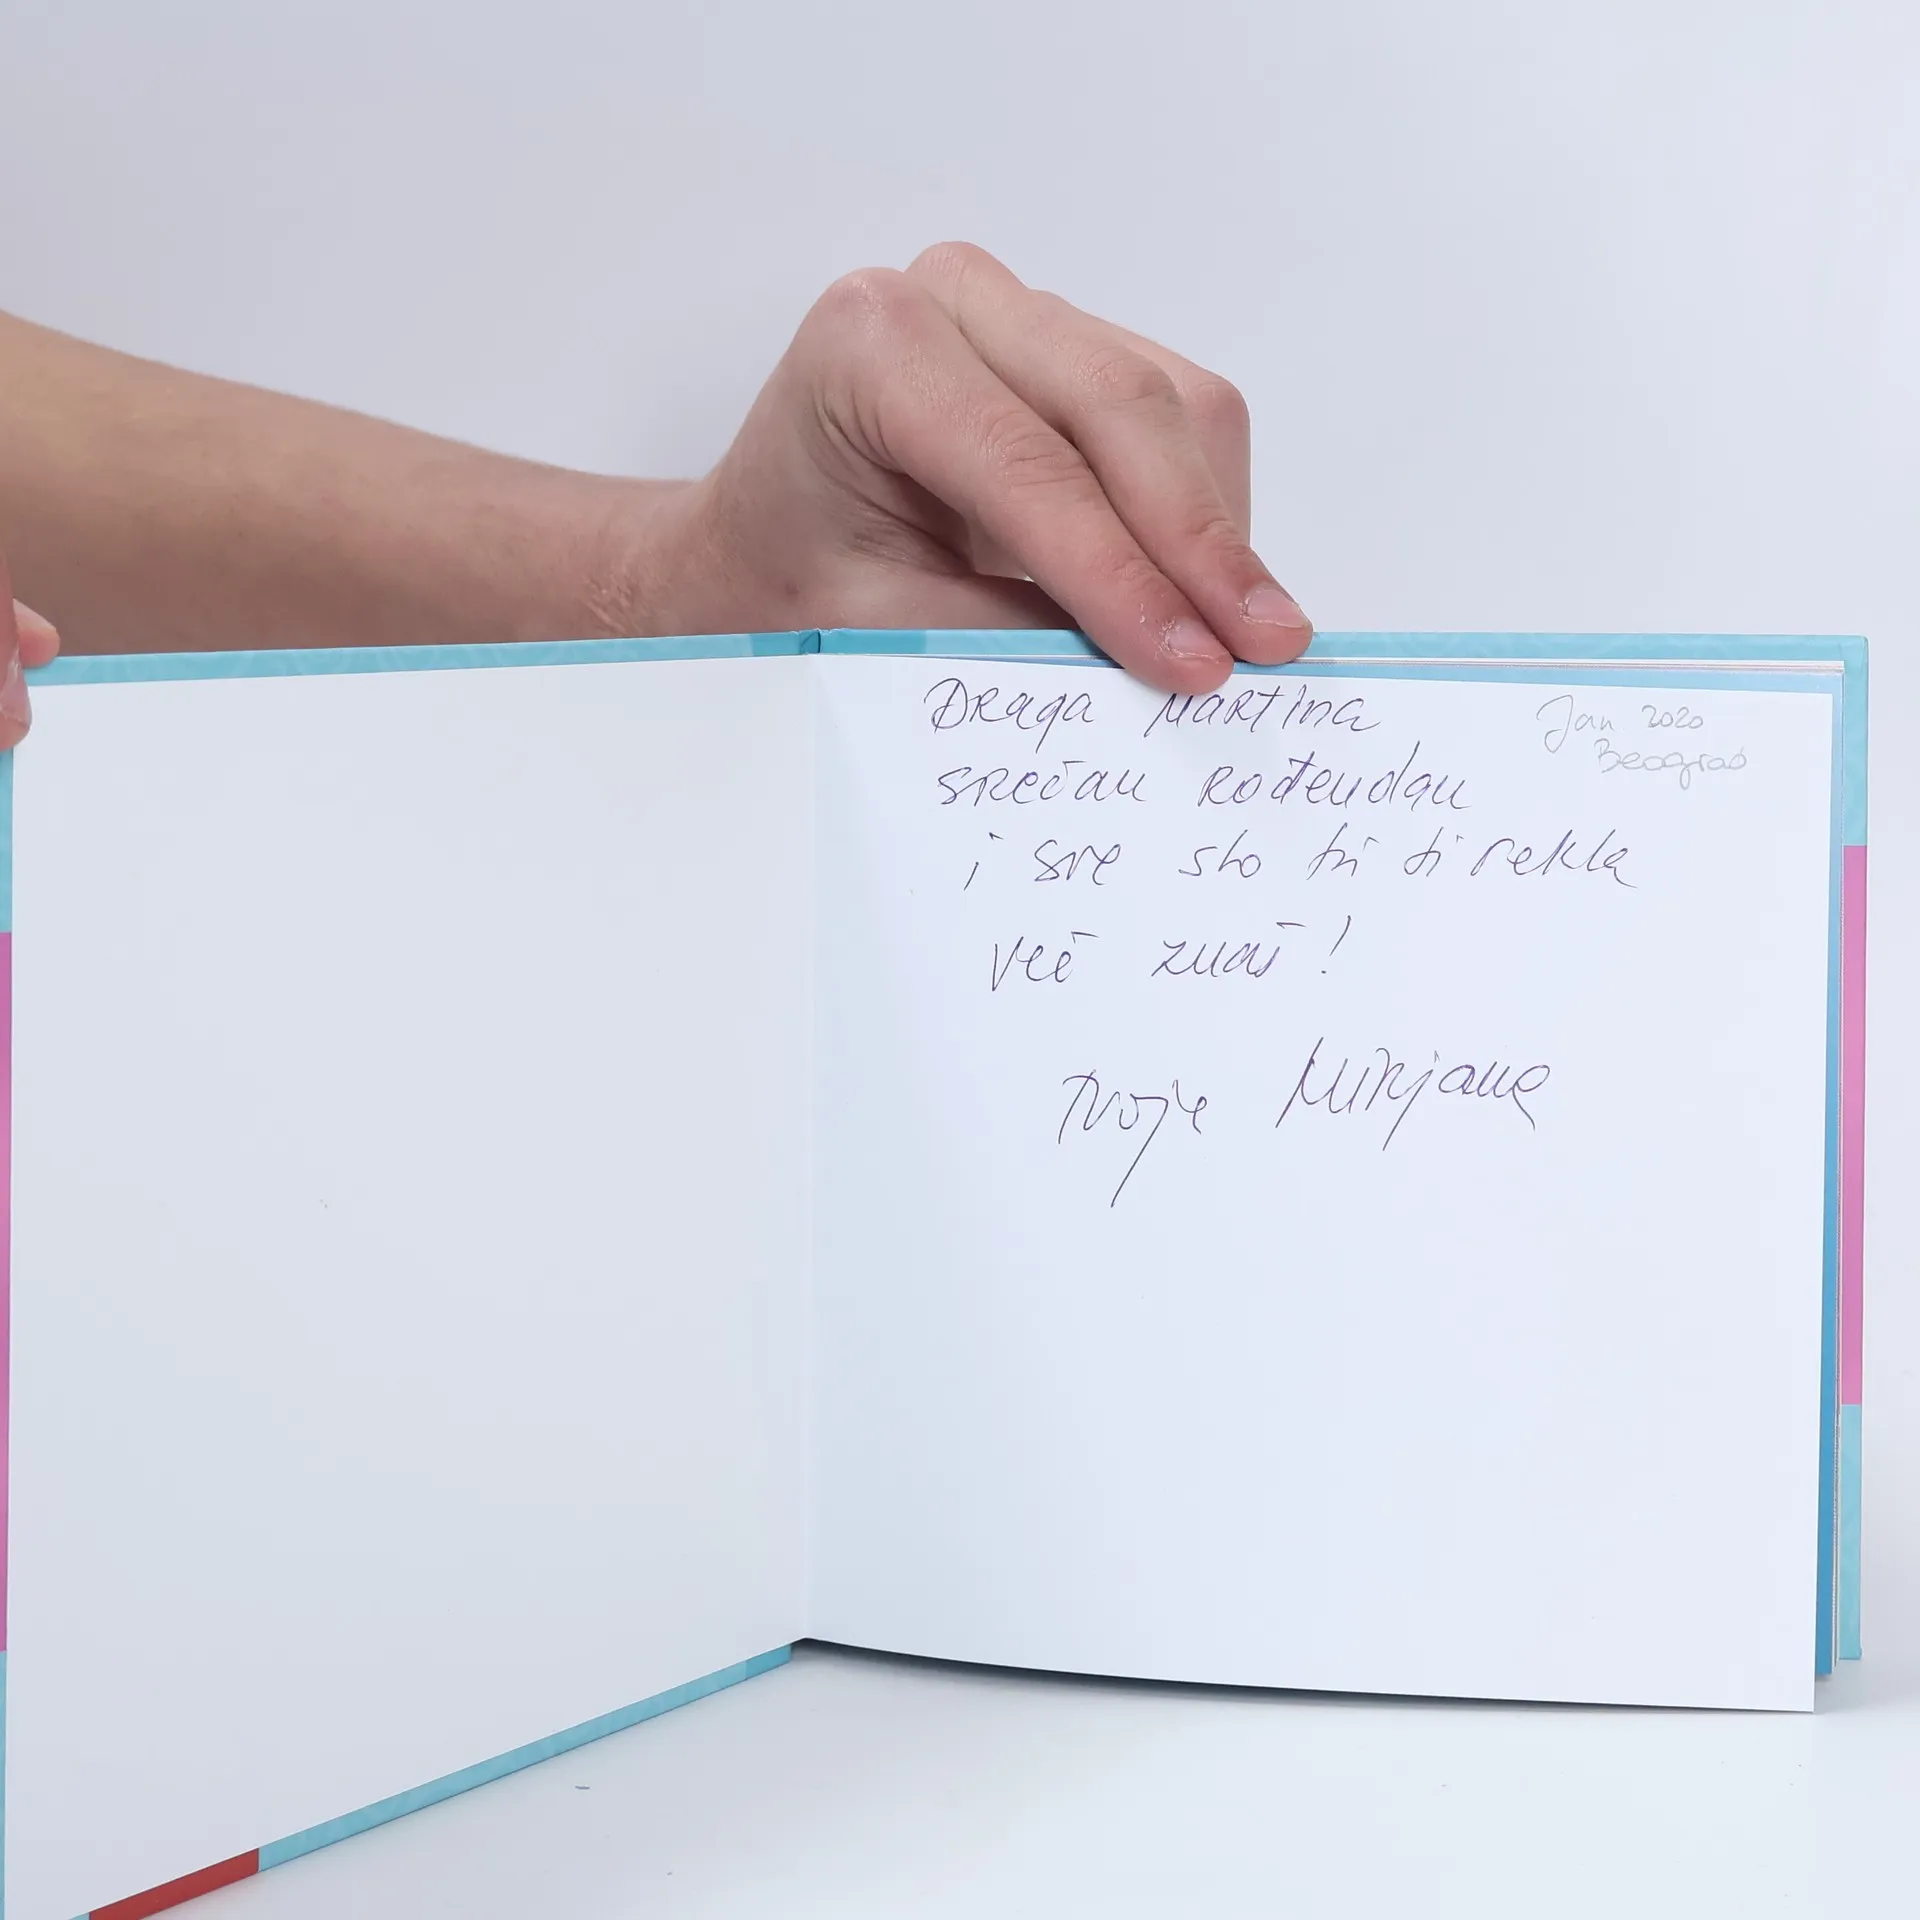 Draga Martina
Jan 2020
Beograd
srećan rođendan
i sve sto bi ti rekla
već znaš!
tvoje Mirjana